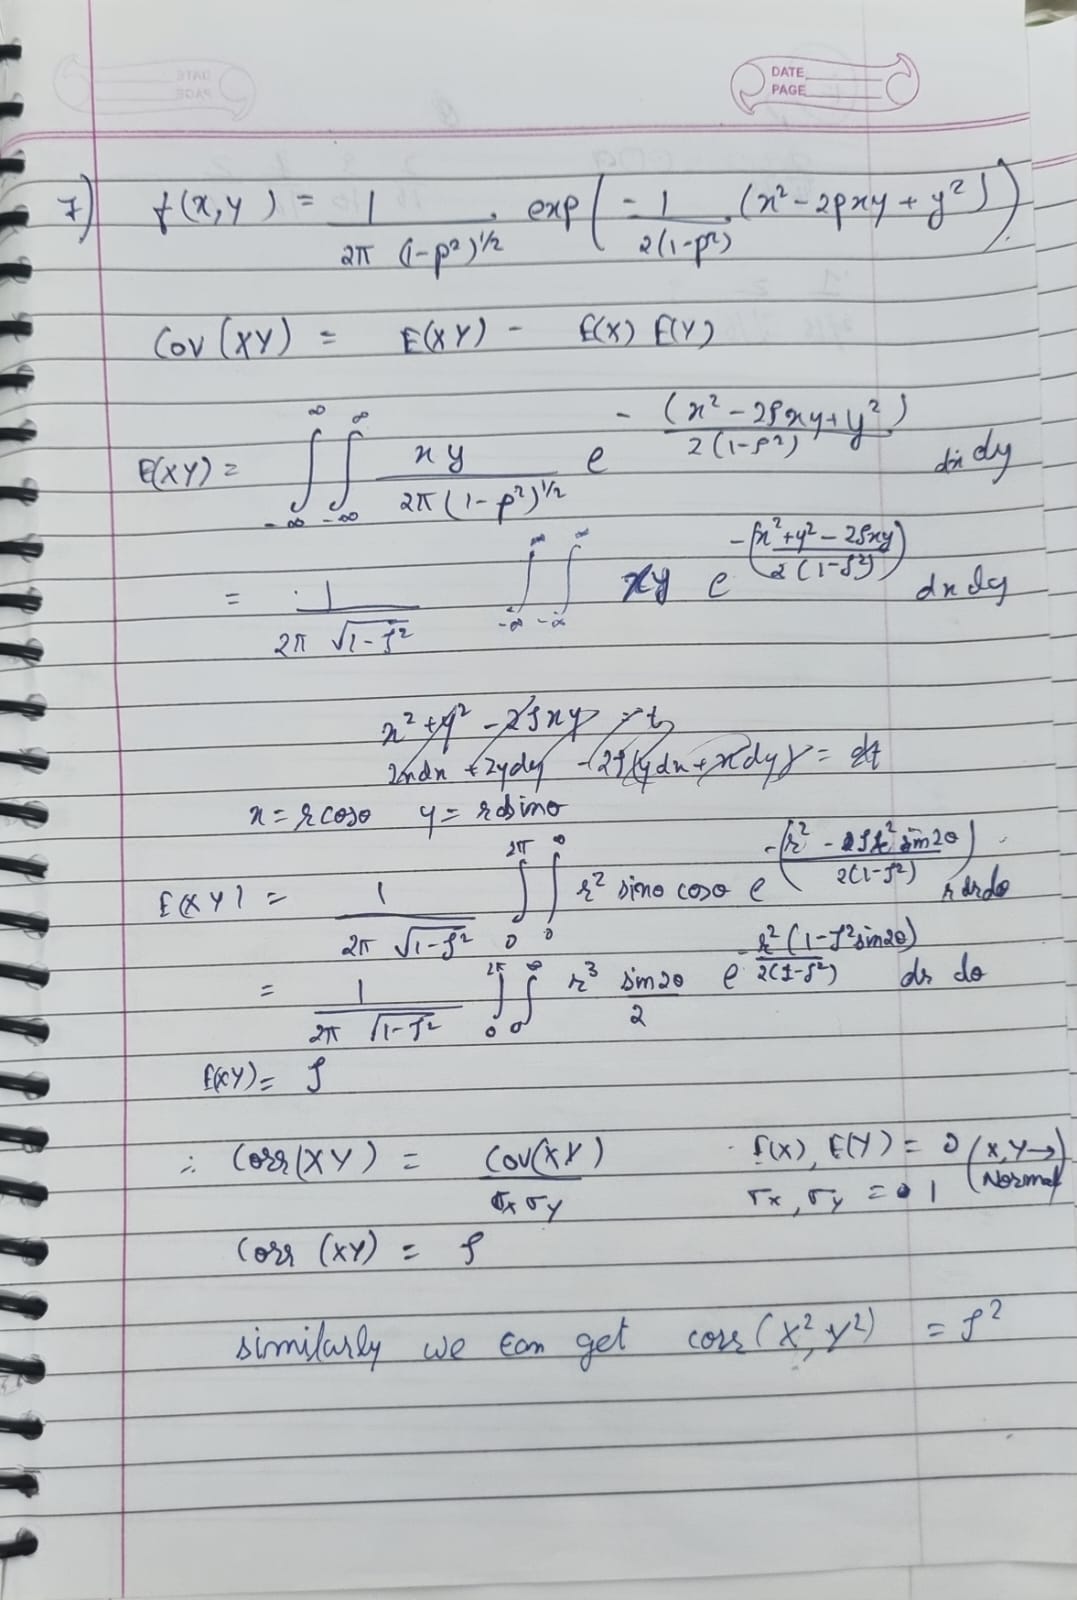 DATE
PAGE
7) f(x,y) = 1/(2π (1-ρ²)^1/2) exp(-1/(2(1-ρ²)) (x² - 2ρxy + y²))
Cov(XY) = E(XY) - E(X) E(Y)
E(XY) = ∫_{-∞}^{∞} ∫_{-∞}^{∞} xy/(2π(1-ρ²)^1/2) e^{-(x² - 2ρxy + y²)/(2(1-ρ²))} dx dy
= 1/(2π √(1-ρ²)) ∫_{-∞}^{∞} ∫_{-∞}^{∞} xy e^{-(x²+y² - 2ρxy)/(2(1-ρ²))} dx dy
x² + y² - 2ρxy = t
2xdx + 2ydy - 2ρ(ydx + xdy) = dt
x = r cosθ y = r sinθ
E(XY) = 1/(2π √(1-ρ²)) ∫_0^{2π} ∫_0^∞ r² sinθ cosθ e^{-(r² - ρr² sin2θ)/(2(1-ρ²))} r dr dθ
= 1/(2π √(1-ρ²)) ∫_0^{2π} ∫_0^∞ r³ sin2θ/2 e^{-r²(1-ρ² sin2θ)/(2(1-ρ²))} dr dθ
E(XY) = ρ
∴ Corr(XY) = Cov(XY)/(σx σy) E(X), E(Y) = 0 (X,Y → Normal)
σx, σy = 1
Corr (XY) = ρ
similarly we can get corr(X², Y²) = ρ²